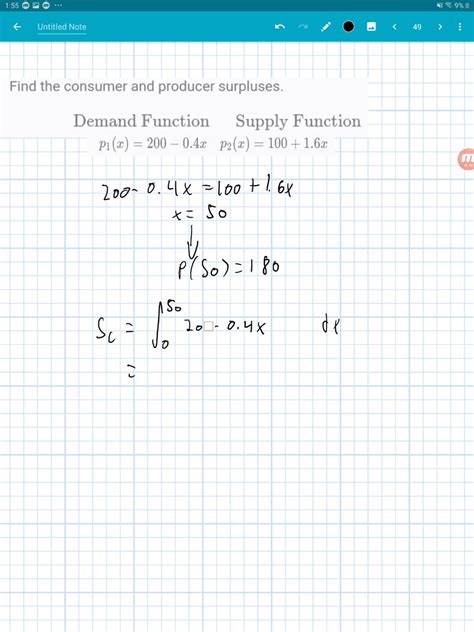 1:55 9%
Untitled Note 49
Find the consumer and producer surpluses.
Demand Function Supply Function
p₁(x) = 200 − 0.4x p₂(x) = 100 + 1.6x
200 - 0.4x = 100 + 1.6x
x = 50
P(50) = 180
Sc = ∫₀⁵⁰ 20 - 0.4x dx
=